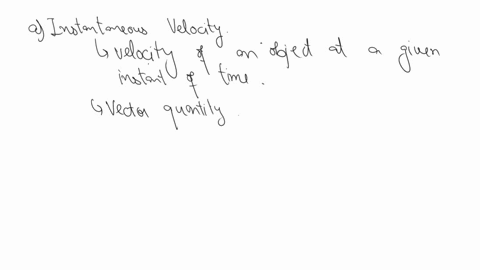 a) Instantaneous Velocity.
↳ velocity of an object at a given
instant of time.
↳ Vector quantity.